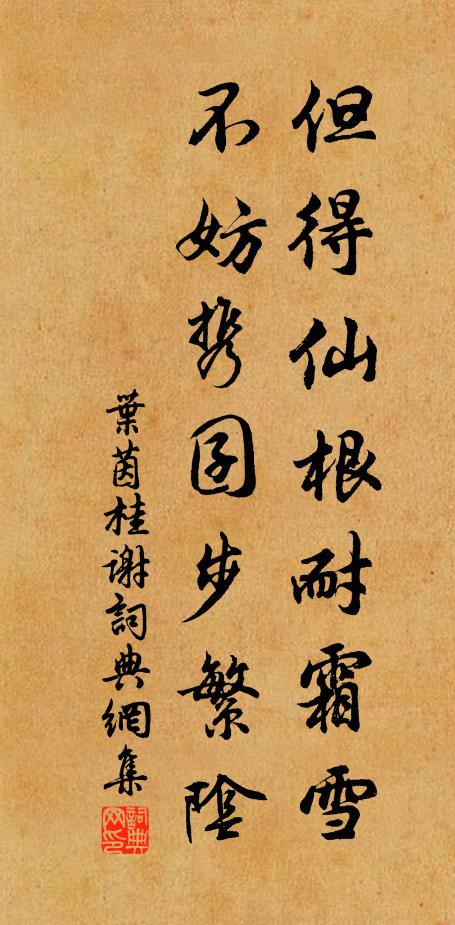 但得仙根耐霜雪
不妨携囝步繁陰
葉茵桂谢詞典網集
詞典网印